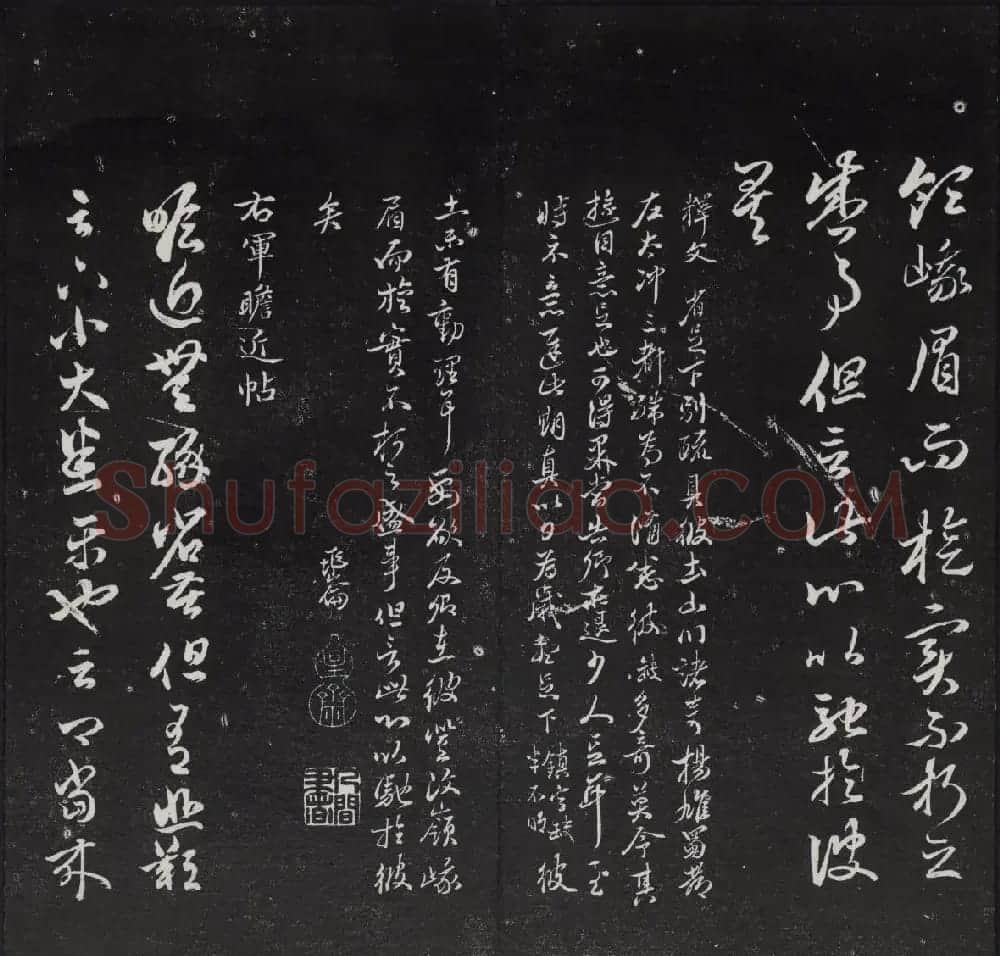 領峨眉而旋實不朽之
盛事但言此心以馳於彼
矣
釋文 省足下別疏具彼土山川諸奇楊雄蜀都
左太沖三都殊為不備悉彼故多奇益令其
遊目意足也可得果當告卿求迎少人足耳至
時示意遲此期真以日為歲想足下鎮字缺半不明彼
土未有動理耳 要欲及卿在彼登汶嶺峨
眉而旋實不朽之盛事但言此心以馳於彼
矣
右軍瞻近帖
瞻近無緣省苦但有悲歎
足下小大悉平也云卿當來
Shufaziliao.COM